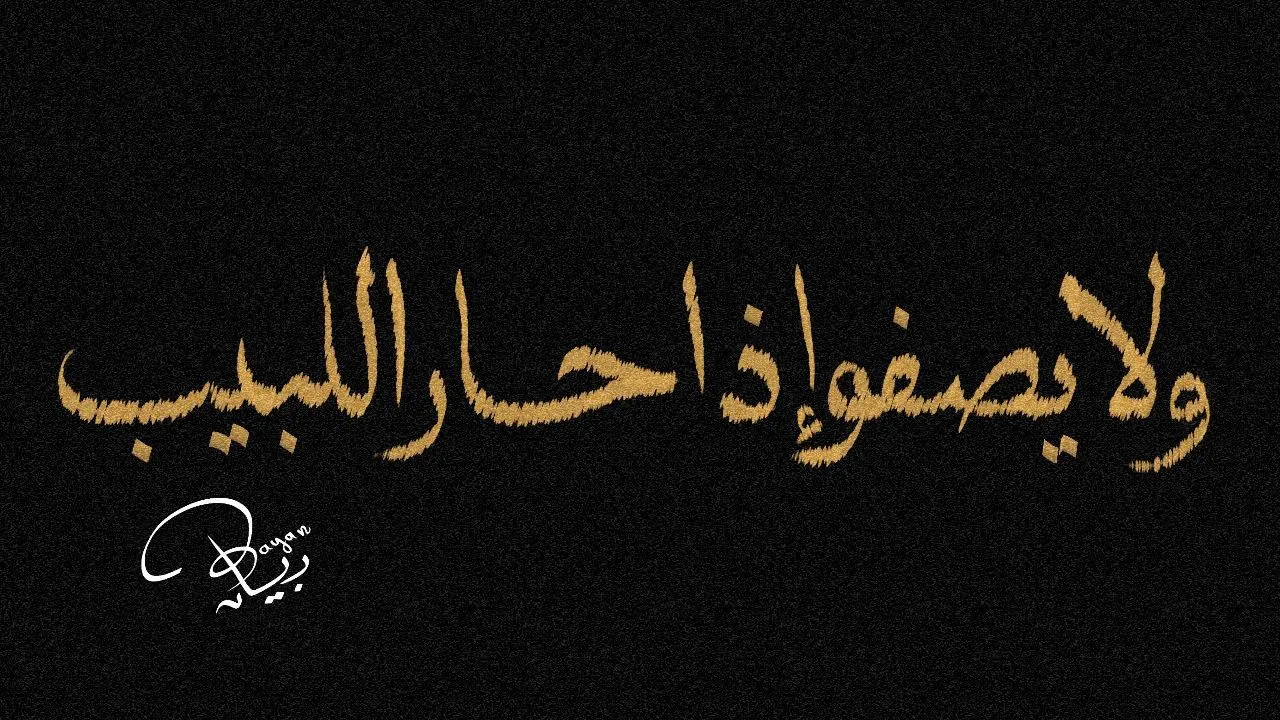 ولا يصفو إذا حار اللبيب
Rayan